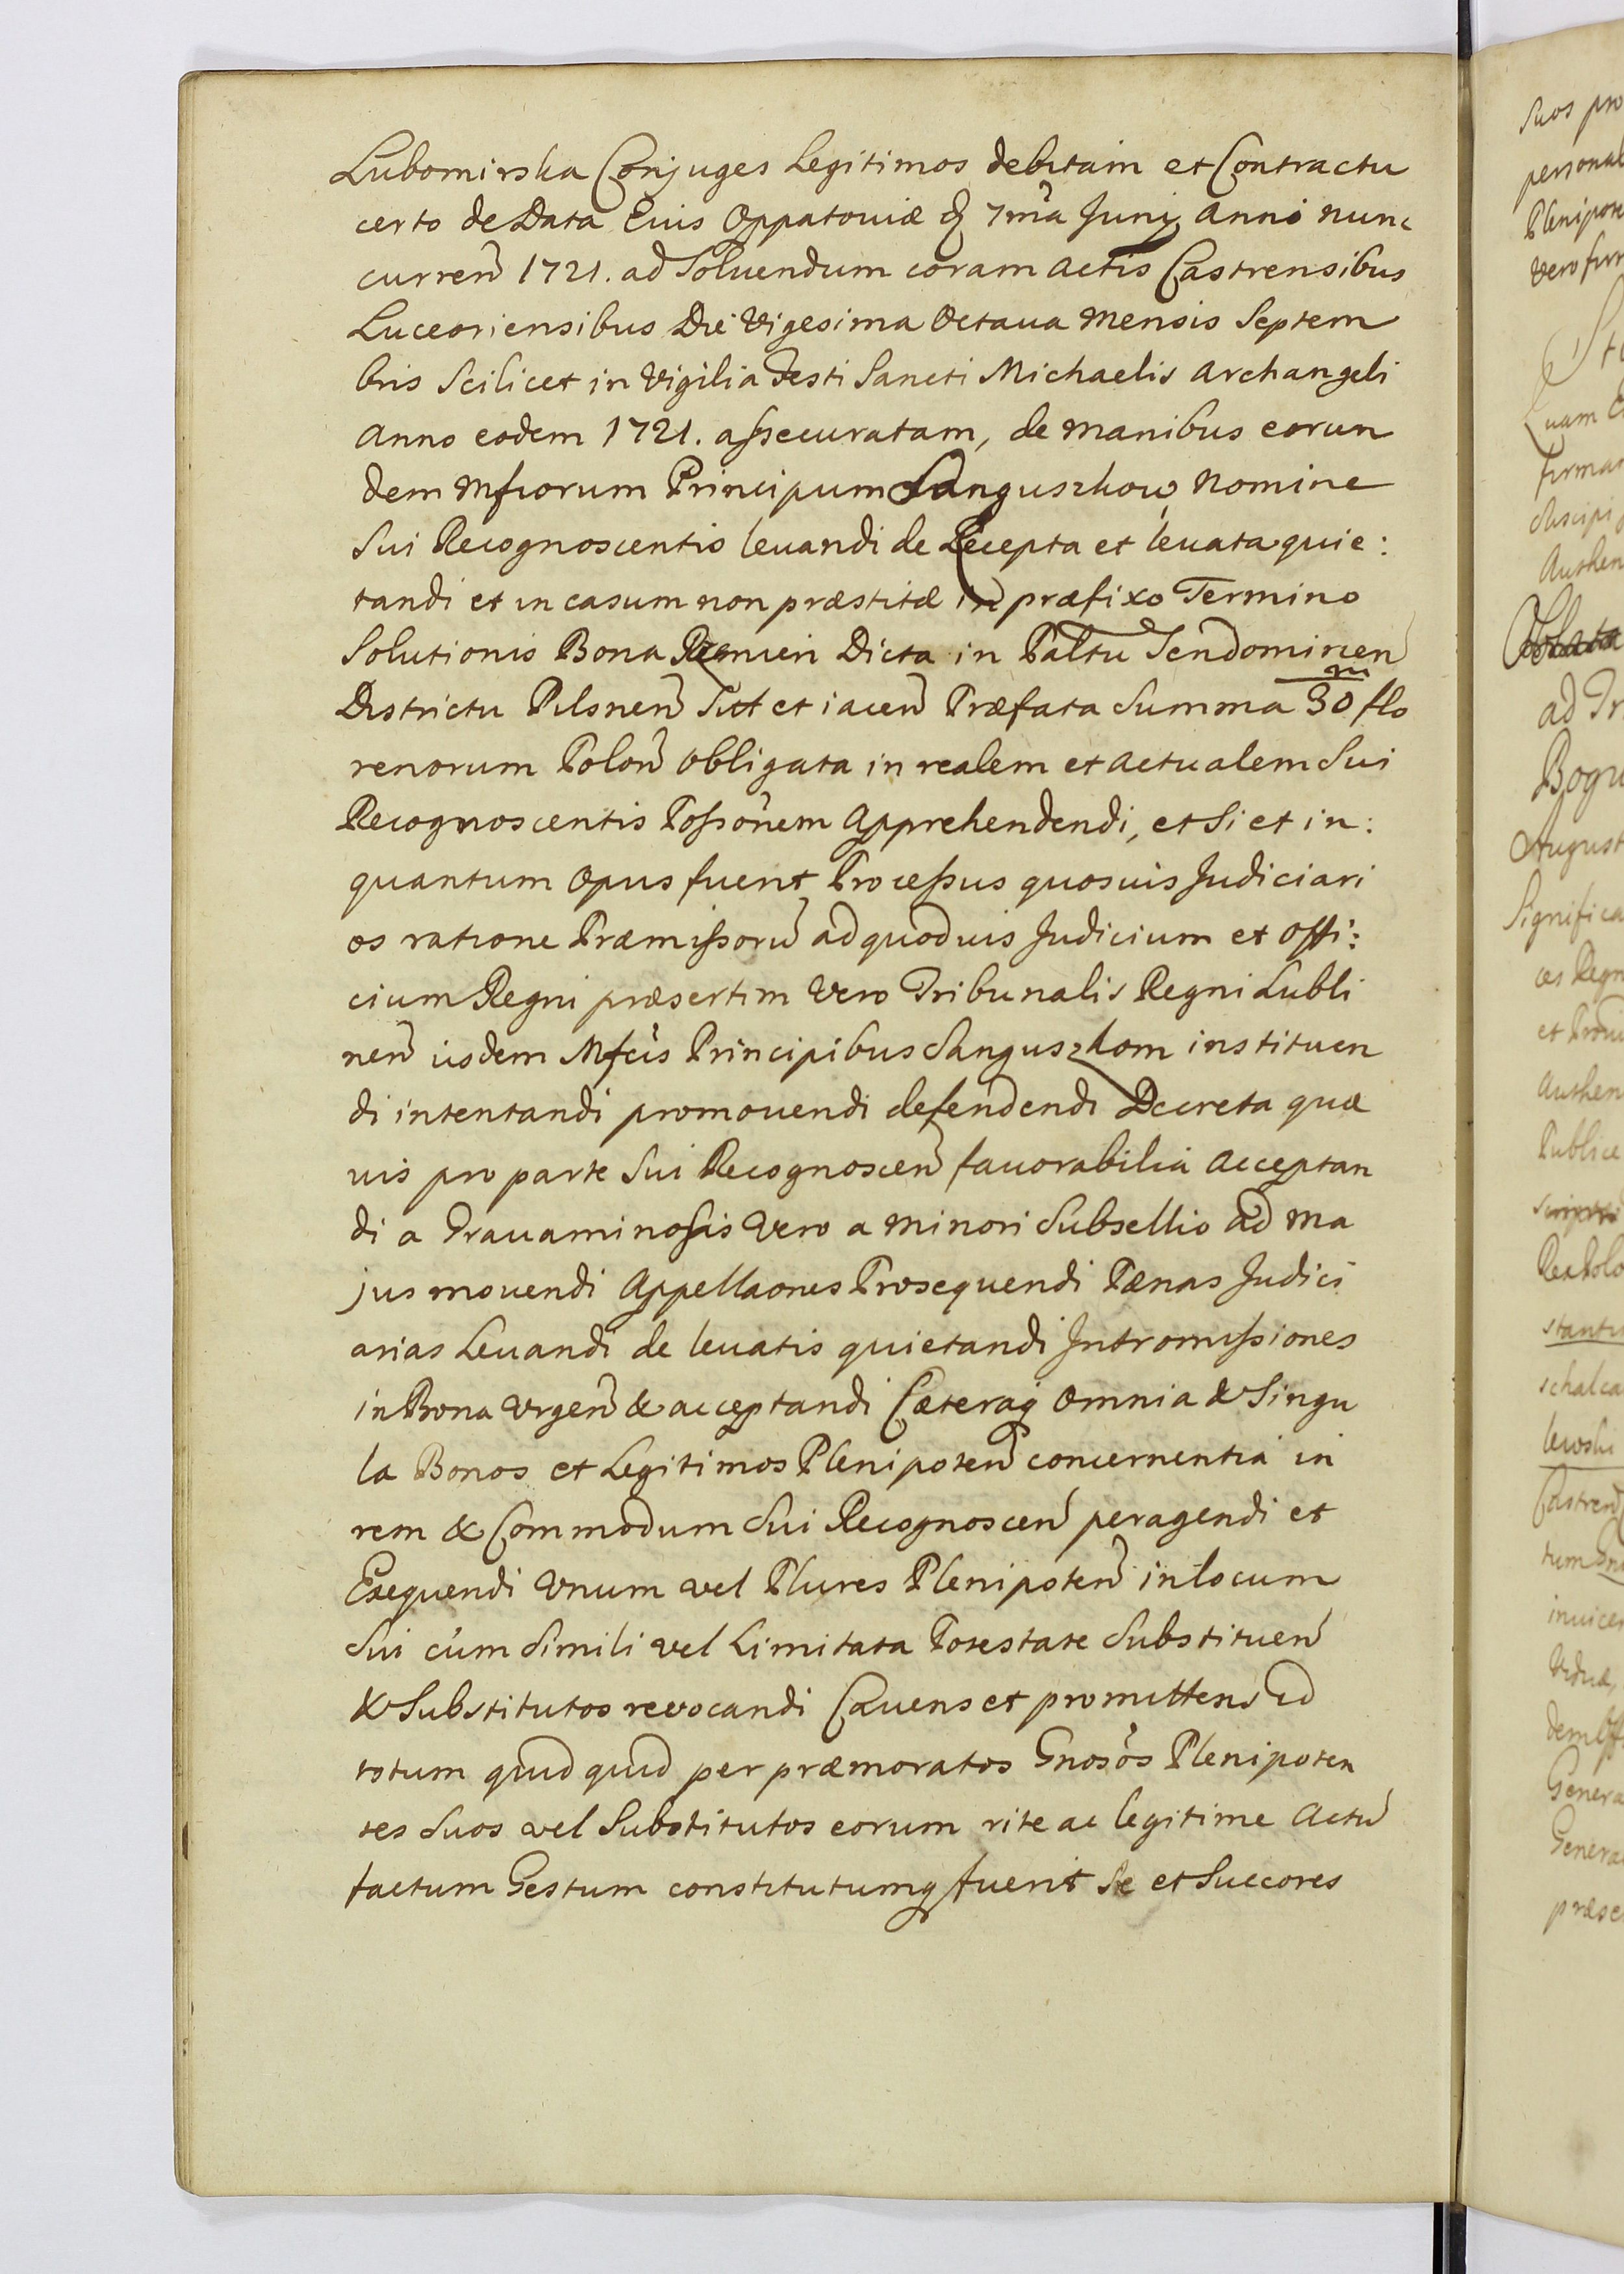 Lubomirska Conjuges Legitimos debitam et Contractu
certo de Data Eius Oppatoviæ 7ma Junij Anno nunc
curren 1721. ad Soluendum coram Actis Castrensibus
Luceoriensibus Die Vigesima Octaua Mensis Septem
bris Scilicet in Vigilia Festi Sancti Michaelis Archangeli
Anno eodem 1721. assecuratam, de manibus eorun
dem Mfcorum Principum Sanguszkow Nomine
Sui Recognoscentis leuandi de Recepta et leuata quie:
tandi et in casum non præstitæ in præfixo Termino
Solutionis Bona Dicta in Paltu Sendomirien
Districtu Pilsnen Sitt et iacen Præfata Summa 30 m flo
renorum Polon Obligata in realem et Actualem Sui
Recognoscentis Possonem Apprehendendi, et Si et in:
quantum Opus fuerit Processus quosuis Judiciari
os ratione Præmissoru ad quoduis Judicium et Offi:
cium Regni præsertim Vero Tribunalis Regni Lubli
nen iisdem Mfcis Principibus Sanguszkom instituen
di intentandi promouendi defendendi Decreta quæ
uis pro parte Sui Recognoscen fauorabilia Acceptan
di a Grauaminosis Vero a Minori Subsellio ad Ma
jus mouendi Appellaones Prosequendi Pænas Judici
arias Leuandi de leuatis quietandi Intromissiones
in Bona Vrgen & acceptandi Cæteraq Omnia & Singu
la Bonos et Legitimos Plenipoten concernentia in
rem & Commodum Sui Recognoscen peragendi et
Exequendi Vnum vel Plures Plenipoten in locum
Sui cum Simili vel Limitata Potestate Substituen
& Substitutos revocandi Cauens et promittens id
totum quid quid per præmoratos Gnosos Plenipoten
tes Suos vel Substitutos eorum rite ac legitime Actu
factum Gestum constitutumq fuerit Se et Succores
Suos pro
Plenipote
ad
August
Significa
Authen
Publice
schalca
Genera
Genera